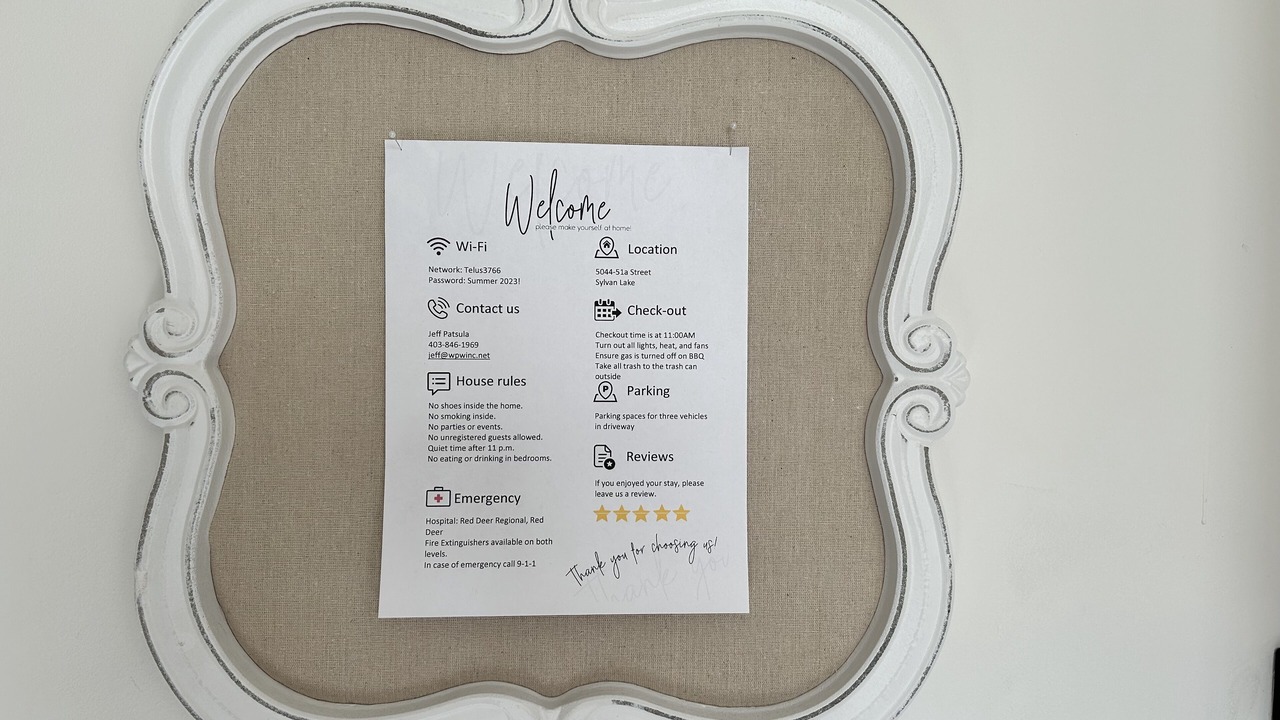 Welcome
please make yourself at home!
Wi-Fi
Network: Telus3766
Password: Summer 2023!
Contact us
Jeff Patsula
403-846-1969
jeff@wpwinc.net
House rules
No shoes inside the home.
No smoking inside.
No parties or events.
No unregistered guests allowed.
Quiet time after 11 p.m.
No eating or drinking in bedrooms.
Emergency
Hospital: Red Deer Regional, Red
Deer
Fire Extinguishers available on both
levels.
In case of emergency call 9-1-1
Location
5044-51a Street
Sylvan Lake
Check-out
Checkout time is at 11:00AM
Turn out all lights, heat, and fans
Ensure gas is turned off on BBQ
Take all trash to the trash can
outside
P
Parking
Parking spaces for three vehicles
in driveway
Reviews
If you enjoyed your stay, please
leave us a review.
Thank you for choosing us!
Thank you